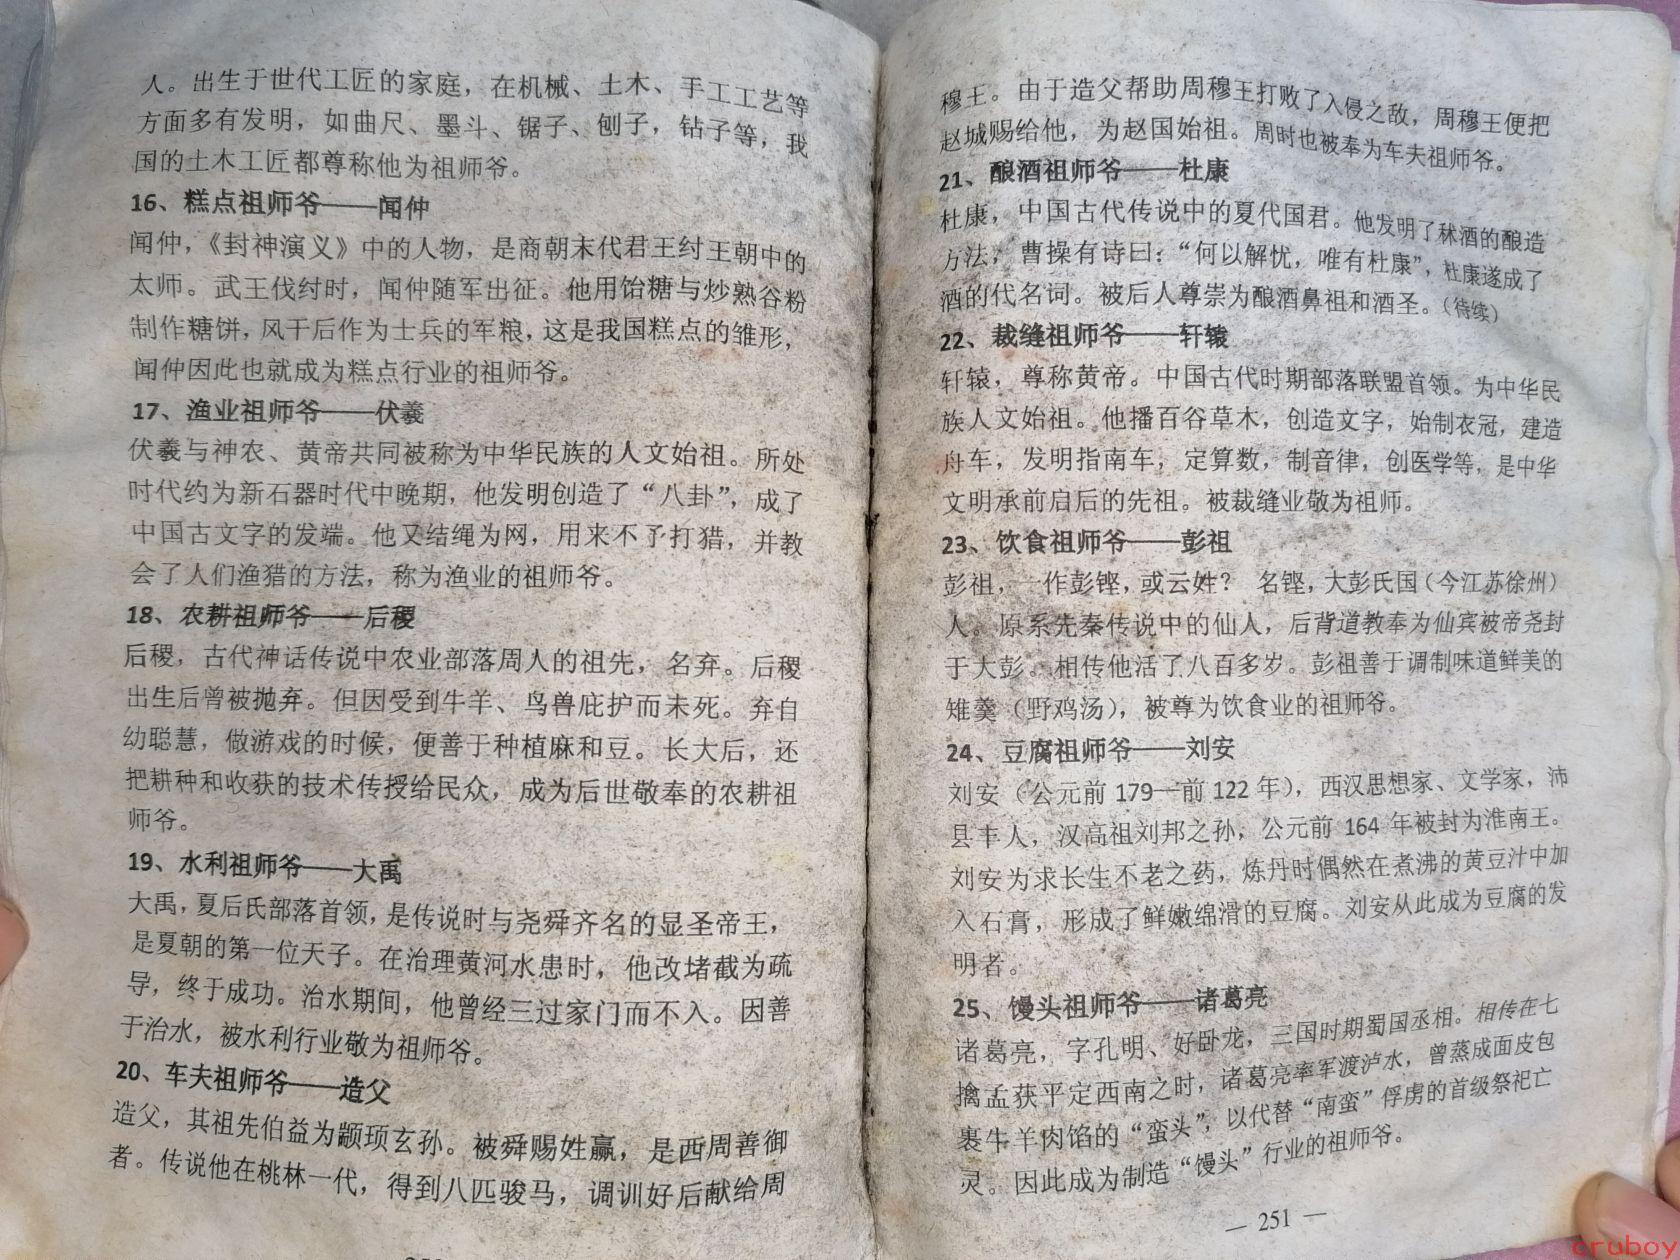 人。出生于世代工匠的家庭，在机械、土木、手工工艺等
方面多有发明，如曲尺、墨斗、锯子、刨子，钻子等，我
国的土木工匠都尊称他为祖师爷。
16、糕点祖师爷——闻仲
闻仲，《封神演义》中的人物，是商朝末代君王纣王朝中的
太师。武王伐纣时，闻仲随军出征。他用饴糖与炒熟谷粉
制作糖饼，风干后作为士兵的军粮，这是我国糕点的雏形，
闻仲因此也就成为糕点行业的祖师爷。
17、渔业祖师爷——伏羲
伏羲与神农、黄帝共同被称为中华民族的人文始祖。所处
时代约为新石器时代中晚期，他发明创造了“八卦”，成了
中国古文字的发端。他又结绳为网，用来不予打猎，并教
会了人们渔猎的方法，称为渔业的祖师爷。
18、农耕祖师爷——后稷
后稷，古代神话传说中农业部落周人的祖先，名弃。后稷
出生后曾被抛弃。但因受到牛羊、鸟兽庇护而未死。弃自
幼聪慧，做游戏的时候，便善于种植麻和豆。长大后，还
把耕种和收获的技术传授给民众，成为后世敬奉的农耕祖
师爷。
19、水利祖师爷——大禹
大禹，夏后氏部落首领，是传说时与尧舜齐名的显圣帝王，
是夏朝的第一位天子。在治理黄河水患时，他改堵截为疏
导，终于成功。治水期间，他曾经三过家门而不入。因善
于治水，被水利行业敬为祖师爷。
20、车夫祖师爷——造父
造父，其祖先伯益为颛顼玄孙。被舜赐姓赢，是西周善御
者。传说他在桃林一代，得到八匹骏马，调训好后献给周
穆王。由于造父帮助周穆王打败了入侵之敌，周穆王便把
赵城赐给他，为赵国始祖。周时也被奉为车夫祖师爷。
21、酿酒祖师爷——杜康
杜康，中国古代传说中的夏代国君。他发明了秫酒的酿造
方法，曹操有诗曰：“何以解忧，唯有杜康”，杜康遂成了
酒的代名词。被后人尊崇为酿酒鼻祖和酒圣。（待续）
22、裁缝祖师爷——轩辕
轩辕，尊称黄帝。中国古代时期部落联盟首领。为中华民
族人文始祖。他播百谷草木，创造文字，始制衣冠，建造
舟车，发明指南车，定算数，制音律，创医学等，是中华
文明承前启后的先祖。被裁缝业敬为祖师。
23、饮食祖师爷——彭祖
彭祖，一作彭铿，或云姓？ 名铿，大彭氏国（今江苏徐州）
人。原系先秦传说中的仙人，后背道教奉为仙宾被帝尧封
于大彭。相传他活了八百多岁。彭祖善于调制味道鲜美的
雉羹（野鸡汤），被尊为饮食业的祖师爷。
24、豆腐祖师爷——刘安
刘安（公元前 179—前 122 年），西汉思想家、文学家，沛
县丰人，汉高祖刘邦之孙，公元前 164 年被封为淮南王。
刘安为求长生不老之药，炼丹时偶然在煮沸的黄豆汁中加
入石膏，形成了鲜嫩绵滑的豆腐。刘安从此成为豆腐的发
明者。
25、馒头祖师爷——诸葛亮
诸葛亮，字孔明、好卧龙，三国时期蜀国丞相。相传在七
擒孟获平定西南之时，诸葛亮率军渡泸水，曾蒸成面皮包
裹牛羊肉馅的“蛮头”，以代替“南蛮”俘虏的首级祭祀亡
灵。因此成为制造“馒头”行业的祖师爷。
— 251 —
cruboy